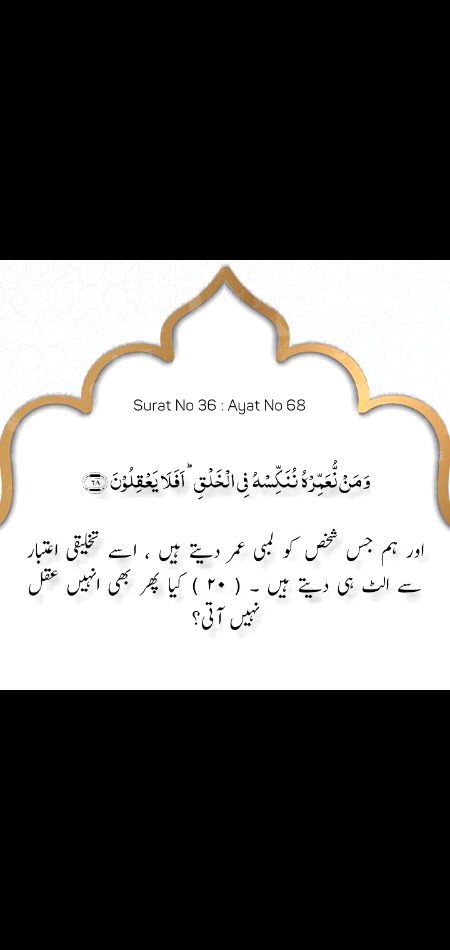 Surat No 36 : Ayat No 68
وَ مَنۡ نُّعَمِّرۡہُ نُنَکِّسۡہُ فِی الۡخَلۡقِ ؕ اَفَلَا یَعۡقِلُوۡنَ ﴿۶۸﴾
اور ہم جس شخص کو لمبی عمر دیتے ہیں ، اسے تخلیقی اعتبار
سے الٹ ہی دیتے ہیں ۔ ( ٢٠ ) کیا پھر بھی انہیں عقل
نہیں آتی؟